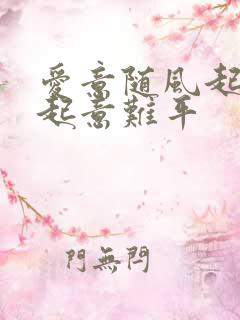 愛意随風起
起意難平
門無閂